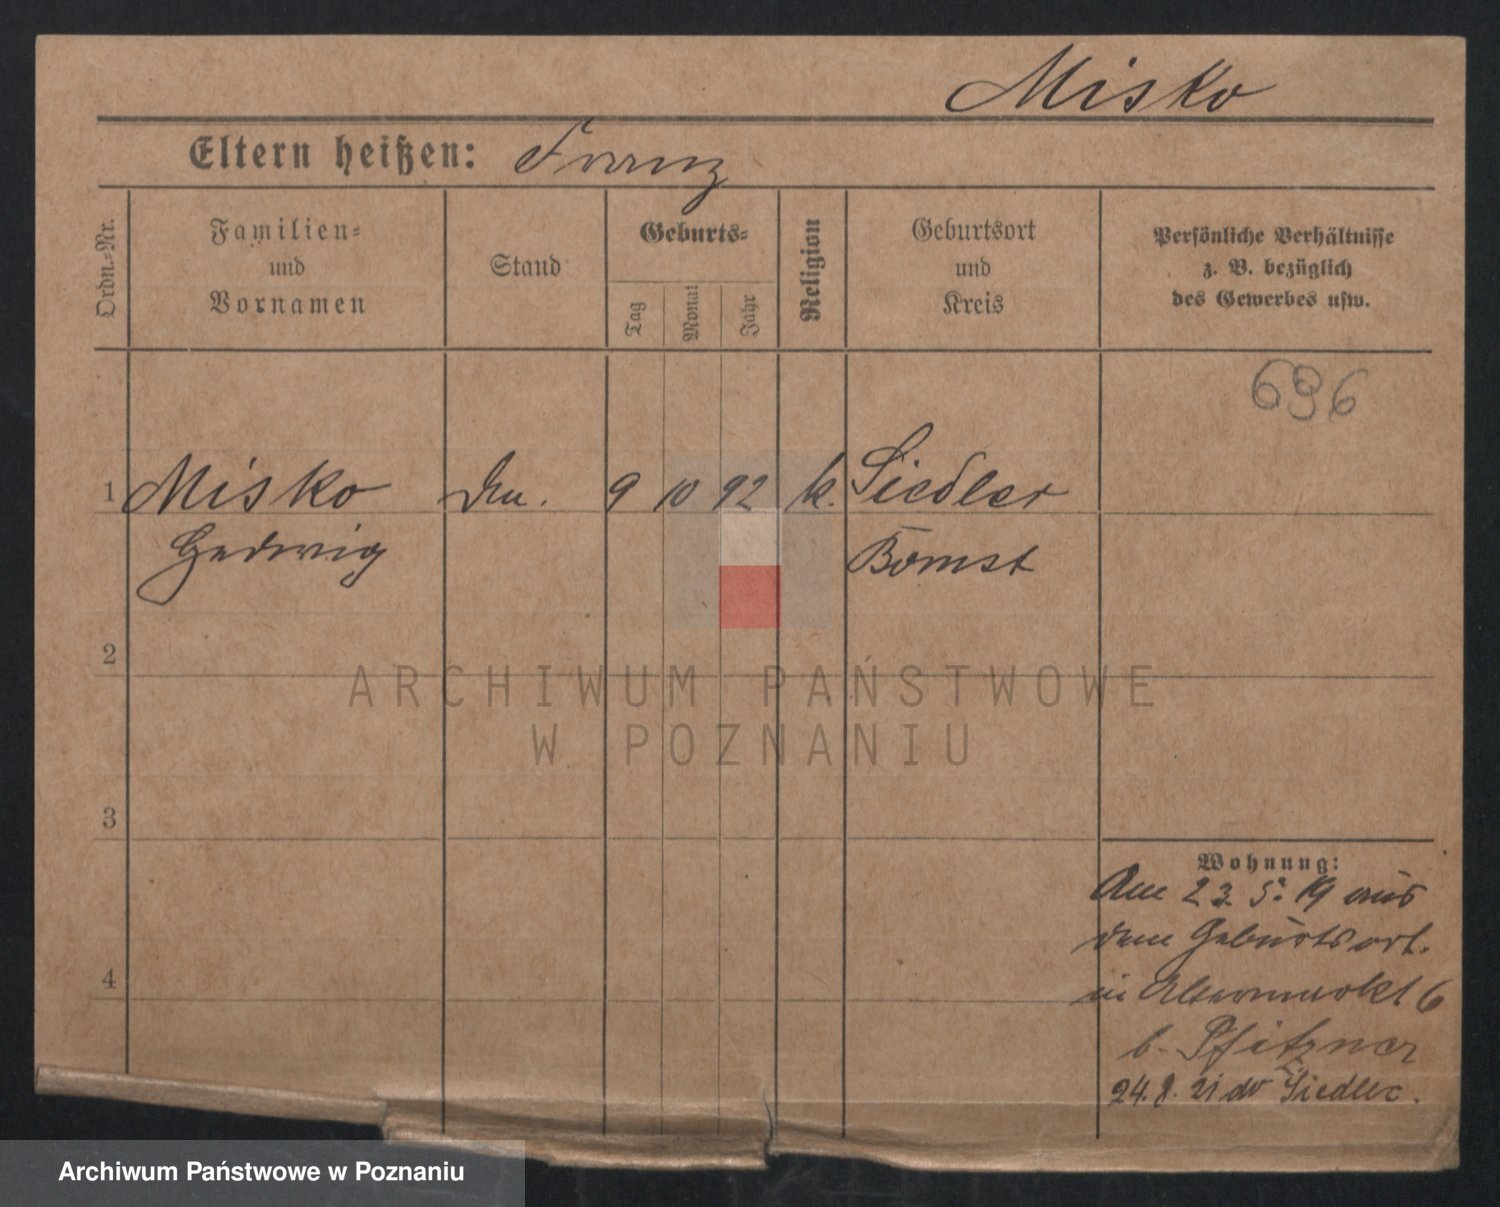 Misko
Eltern heißen: Franz
Ordn.-Nr.
Familien-
und
Vornamen
Stand
Geburts-
Tag
Monat
Jahr
Religion
Geburtsort
und
Kreis
Persönliche Verhältnisse
z. B. bezüglich
des Gewerbes usw.
696
1 Misko 9 10 92 k. Siedler
Hedwig Bomst
2
ARCHIWUM PAŃSTWOWE
W POZNANIU
3
Wohnung:
Am 23. 5. 19 aus
dem Geburtsort.
in Altermarkt 6
4
b. Pfitzner
24. 8. 21 Siedlec.
Archiwum Państwowe w Poznaniu